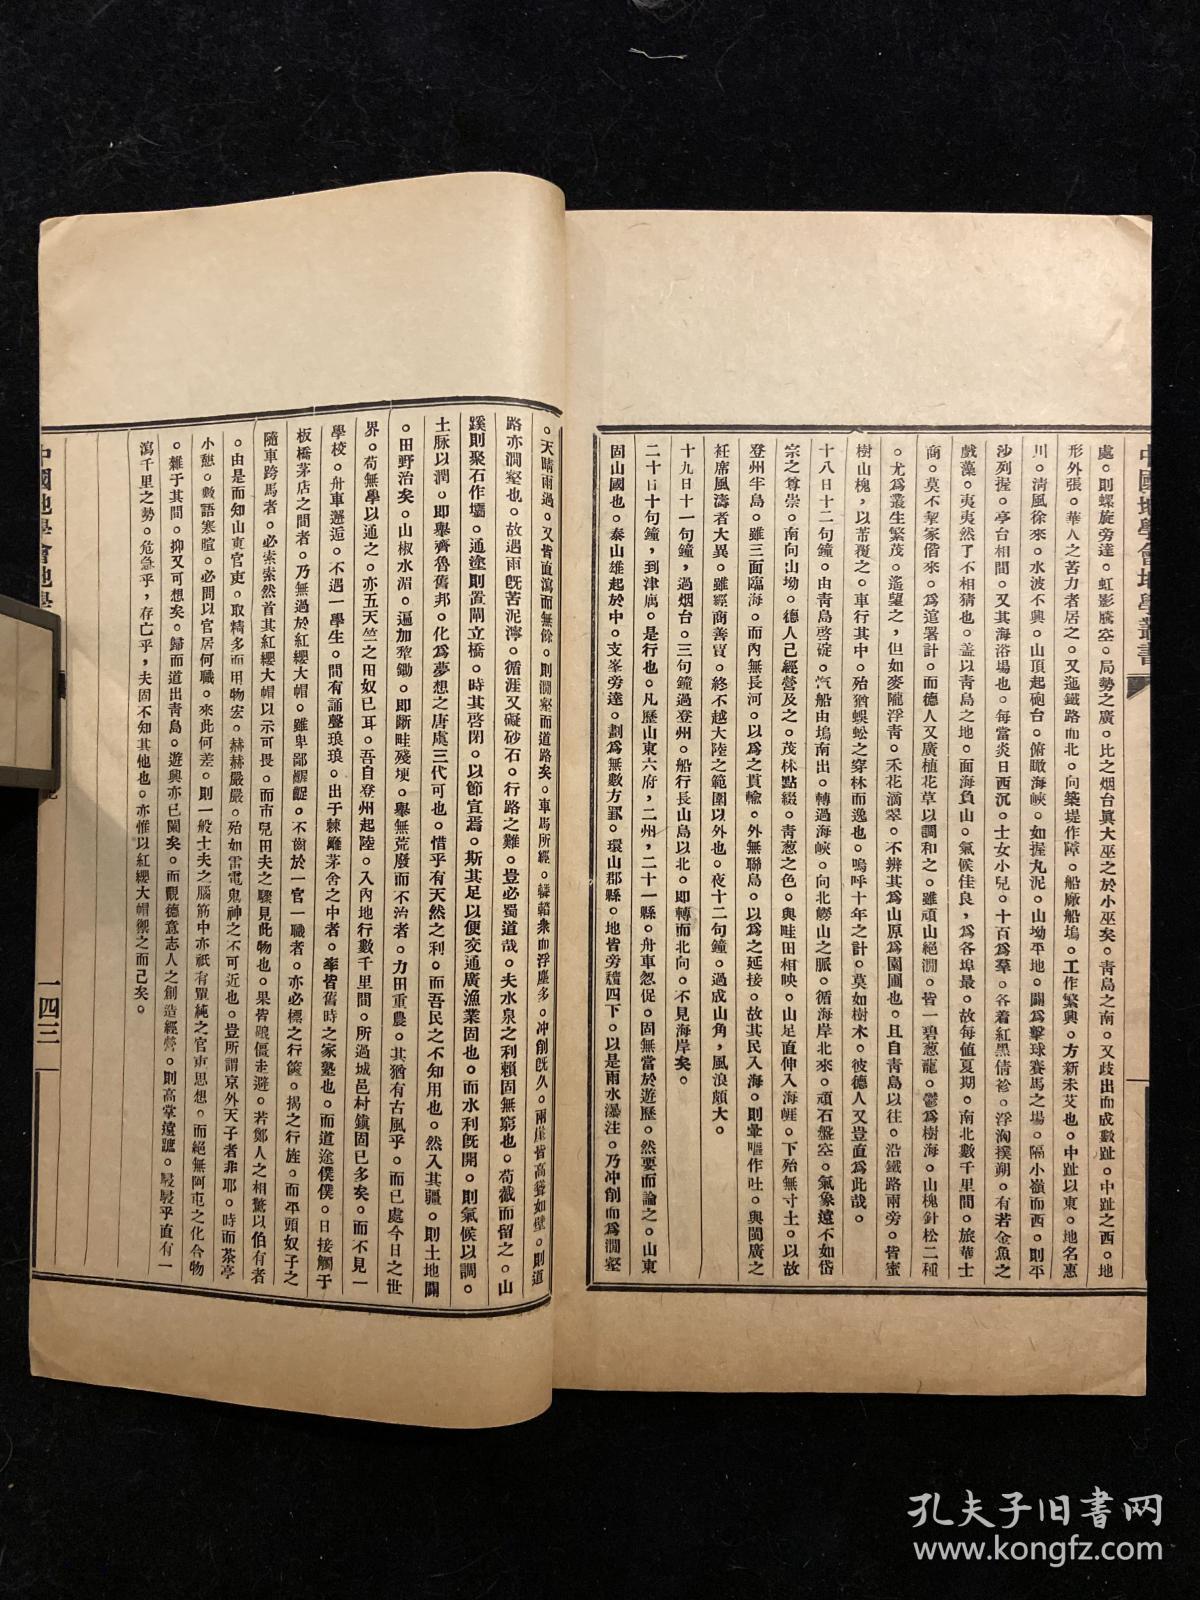 中國地學會地學叢書
處。則螺旋旁達。虹影騰空。局勢之廣。比之烟台眞大巫之於小巫矣。靑島之南。又歧出而成數趾。中趾之西。地
形外張。華人之苦力者居之。又迤鐵路而北。向築堤作障。船廠船塢。工作繁興。方新未艾也。中趾以東。地名惠
川。淸風徐來。水波不興。山頂起砲台。俯瞰海峽。如握丸泥。山坳平地。闢爲擊球賽馬之場。隔小嶺而西。則平
沙列幄。亭台相間。又其海浴場也。每當炎日西沉。士女小兒。十百爲羣。各着紅黑倩袗。浮洶撲朔。有若金魚之
戲藻。夷夷然了不相猜也。蓋以靑島之地。面海負山。氣候佳良，爲各埠最。故每値夏期。南北數千里間。旅華士
商。莫不挈家偕來。爲逭署計。而德人又廣植花草以調和之。雖頑山絕澗。皆一碧葱蘢。鬱爲樹海。山槐針松二種
。尤爲叢生繁茂。遙望之，但如麥隴浮靑。禾花滴翠。不辨其爲山原爲園圃也。且自靑島以往。沿鐵路兩旁。皆蜜
樹山槐，以苫覆之。車行其中。殆猶蜈蚣之穿林而逸也。嗚呼十年之計。莫如樹木。彼德人又豈直爲此哉。
十八日十二句鐘。由靑島啓碇。汽船由塢南出。轉過海峽。向北嶗山之脈。循海岸北來。頑石盤空。氣象遠不如岱
宗之尊崇。南向山坳。德人己經營及之。茂林點綴。靑葱之色。與畦田相映。山足直伸入海岠。下殆無寸土。以故
登州半島。雖三面臨海。而內無長河。以爲之貫輸。外無聯島。以爲之延接。故其民入海。則暈嘔作吐。與閩廣之
衽席風濤者大異。雖經商善賈。終不越大陸之範圍以外也。夜十二句鐘。過成山角，風浪頗大。
十九日十一句鐘，過烟台。三句鐘過登州。船行長山島以北。即轉而北向。不見海岸矣。
二十日十句鐘，到津寓。是行也。凡歷山東六府，二州，二十一縣。舟車忽促。固無當於遊歷。然要而論之。山東
固山國也。泰山雄起於中。支峯旁達。劃爲無數方罫。環山郡縣。地皆旁穨四下。以是雨水瀑注。乃冲削而爲澗壑
。天晴雨過。又皆直瀉而無餘。則澗壑而道路矣。車馬所經。轔轕衆而浮塵多。冲削旣久。兩崖皆高聳如壁。則道
路亦澗壑也。故遇雨旣苦泥濘。循涯又礙砂石。行路之難。豈必蜀道哉。夫水泉之利賴固無窮也。苟截而留之。山
蹊則聚石作壩。通塗則置閘立橋。時其啓閉。以節宣焉。斯其足以便交通廣漁業固也。而水利旣開。則氣候以調。
土脉以潤。即舉齊魯舊邦。化爲夢想之唐虞三代可也。惜乎有天然之利。而吾民之不知用也。然入其疆。則土地闢
。田野治矣。山椒水湄。遍加犂鋤。即斷畦殘埂。舉無荒廢而不治者。力田重農。其猶有古風乎。而已處今日之世
界。苟無學以通之。亦五天竺之田奴已耳。吾自登州起陸。入內地行數千里間。所過城邑村鎭固已多矣。而不見一
學校。舟車邂逅。不遇一學生。間有誦聲琅琅。出于棘籬茅舍之中者。率皆舊時之家塾也。而道途僕僕。日接觸于
板橋茅店之間者。乃無過於紅纓大帽。雖卑鄙齷齪。不齒於一官一職者。亦必標之行篋。揭之行旌。而平頭奴子之
隨車跨馬者。必索索然首其紅纓大帽以示可畏。而市兒田夫之驟見此物也。果皆踉僵走避。若鄭人之相驚以伯有者
。由是而知山東官吏。取精多而用物宏。赫赫嚴嚴。殆如雷電鬼神之不可近也。豈所謂京外天子者非耶。時而茶亭
小憇。數語寒暄。必問以官居何職。來此何差。則一般士夫之腦筋中亦祇有單純之官吏思想。而絕無阿屯之化合物
。雜于其間。抑又可想矣。歸而道出靑島。遊興亦已闌矣。而覩德意志人之創造經營。則高掌遠蹠。駸駸乎直有一
瀉千里之勢。危急乎，存亡乎，夫固不知其他也。亦惟以紅纓大帽禦之而已矣。
中國地學會地學
一四三
孔夫子旧书网
www.kongfz.com